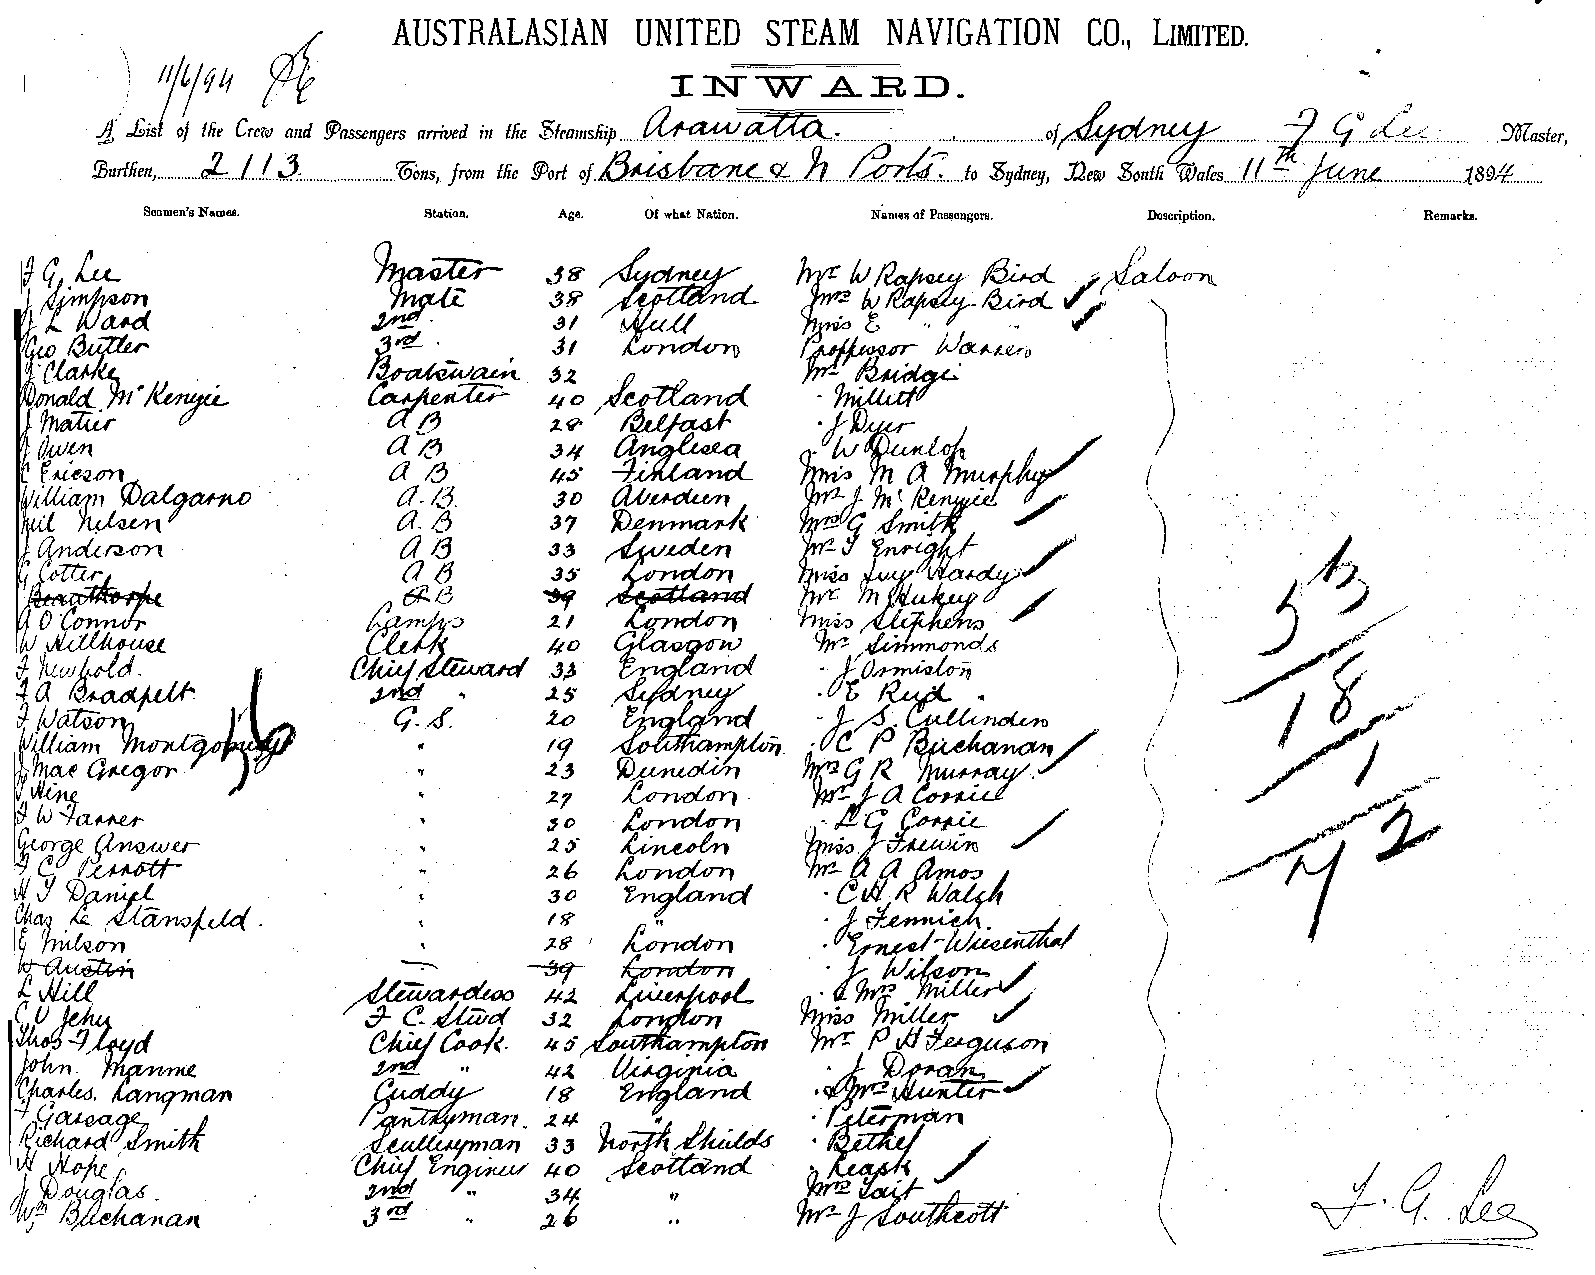 AUSTRALASIAN UNITED STEAM NAVIGATION CO., LIMITED.
11/6/94
INWARD.
A List of the Crew and Passengers arrived in the Steamship Arawatta. of Sydney F G Lee Master,
Burthen, 2113 Tons, from the Port of Brisbane & N Ports. to Sydney, New South Wales 11th June 1894
Seamen's Names. Station. Age. Of what Nation. Names of Passengers. Description. Remarks.
F G Lee Master 38 Sydney Mr W Rapsey Bird Saloon
J Simpson Mate 38 Scotland Mrs W Rapsey Bird
J L Ward 2nd 31 Hull Miss E " "
Geo Butler 3rd 31 London Proffessor Warren
J Clarke Boatswain 32 Mr Bridge
Donald McKenzie Carpenter 40 Scotland " Millett
J Matier A B 28 Belfast " J Dyer
J Owen A B 34 Anglesea " W Dunlop
Ericson A B 45 Finland Miss M A Murphy
William Dalgarno A.B. 30 Aberdeen Mr J McKenzie
Neil Nelsen A.B 37 Denmark Mrs G Smith
J Anderson A B 33 Sweden Mr T Enright
G Cotter A B 35 London Miss Ivy Hardy
Beauthorpe A B 39 Scotland Mr M
A O'Connor Lamps 21 London Miss Stephens
W Hillhouse Clerk 40 Glasgow Mr Simmonds
F Newbold Chief Steward 33 England " J Ormiston
F A Bradpelt 2nd " 25 Sydney " E Reid
F Watson G.S. 20 England " J S Cullinden
William Montgomery " 19 Southampton " C P Buchanan
J MacGregor " 23 Dunedin Mrs G R Murray
J Hine " 27 London Mr J A Corrie
F W Farrer " 30 London " L G Corrie
George Answer " 25 Lincoln Miss J Frewin
F C Perrott " 26 London Mr A A Amos
H J Daniel " 30 England " C H R Walsh
Chas Le Stansfeld " 18 " " J Fennich
E Milson " 28 London " Ernest Wiesenthal
W Austin 39 London " J Wilson
L Hill Stewardess 42 Liverpool " & Mrs Miller
Jehu F C. Stwd 32 London Miss Miller
Thos Floyd Chief Cook 45 Southampton Mr P H Ferguson
John Manme 2nd " 42 Virginia " J Doran
Charles Langman Cuddy 18 England " & Mrs Hunter
F Gassage Pantryman 24 " " Peterman
Richard Smith Sculleryman 33 North Shields " Bethel
H Hope Chief Engineer 40 Scotland " Leask
J Douglas 2nd " 34 " Mrs Tait
Wm Buchanan 3rd " 26 " Mr J Southcott
56
18
1
72
F. G. Lee